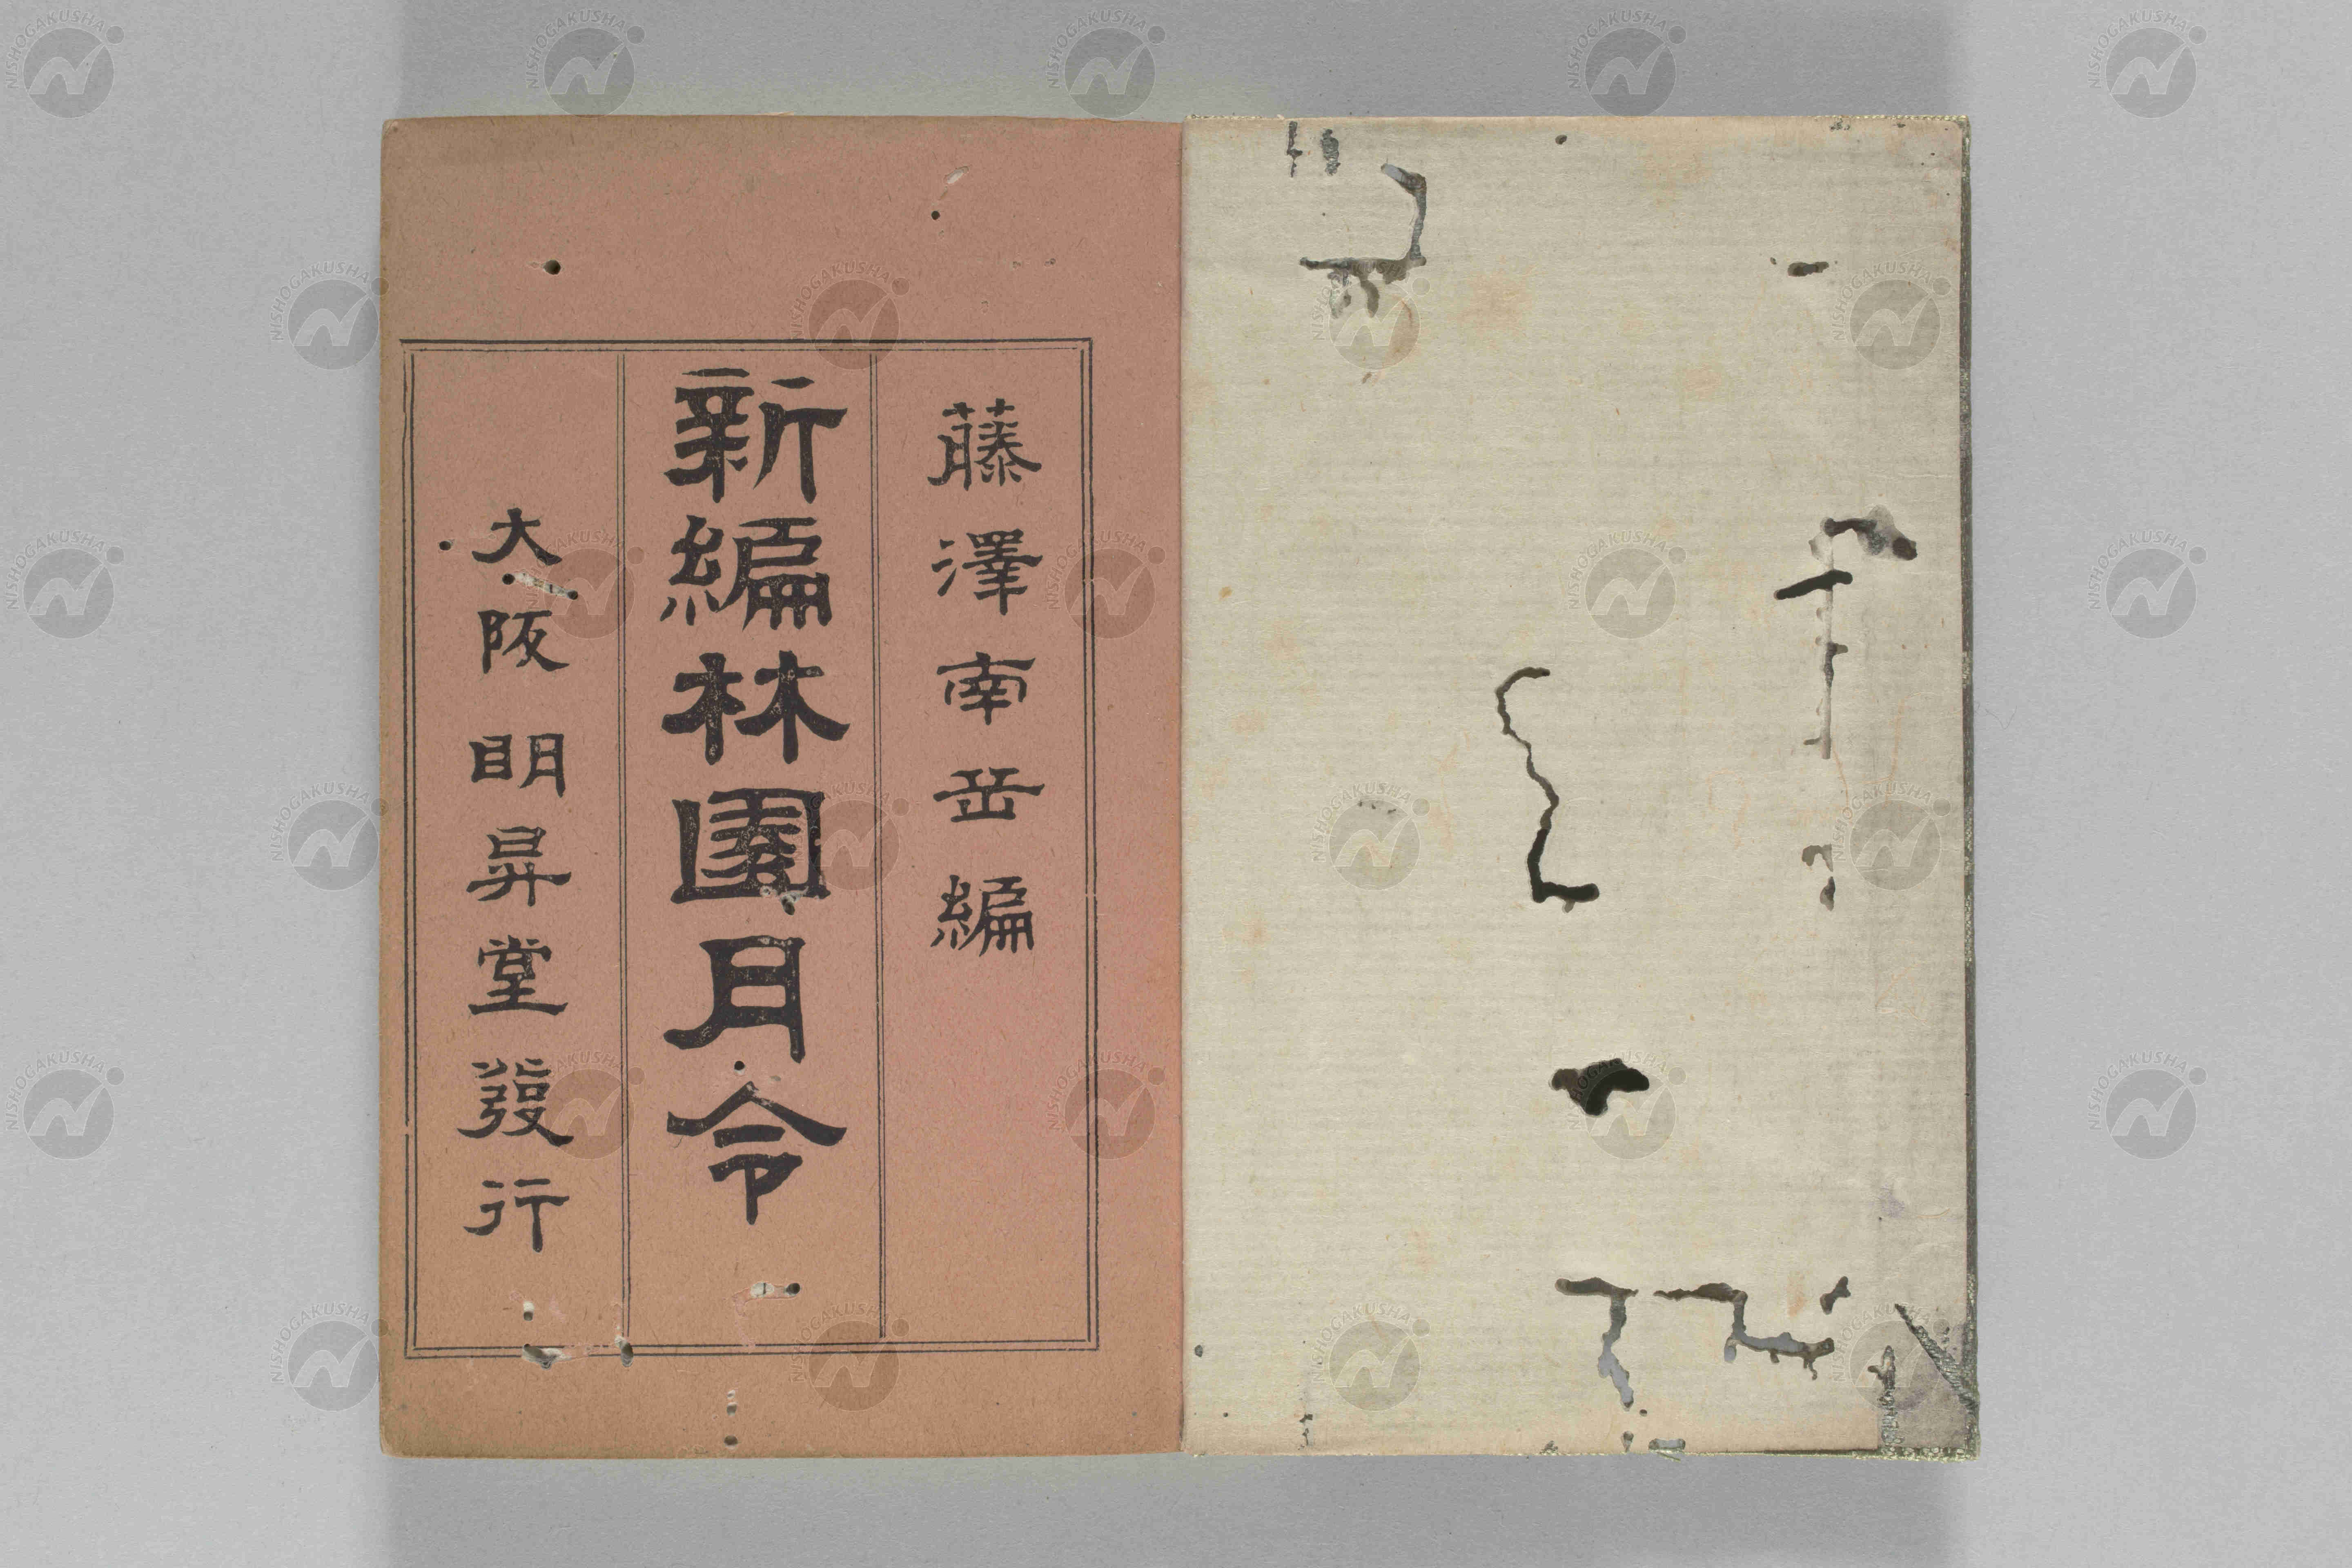 藤澤南岳編
新編林園月令
大阪明昇堂發行
NISHOGAKUSHA